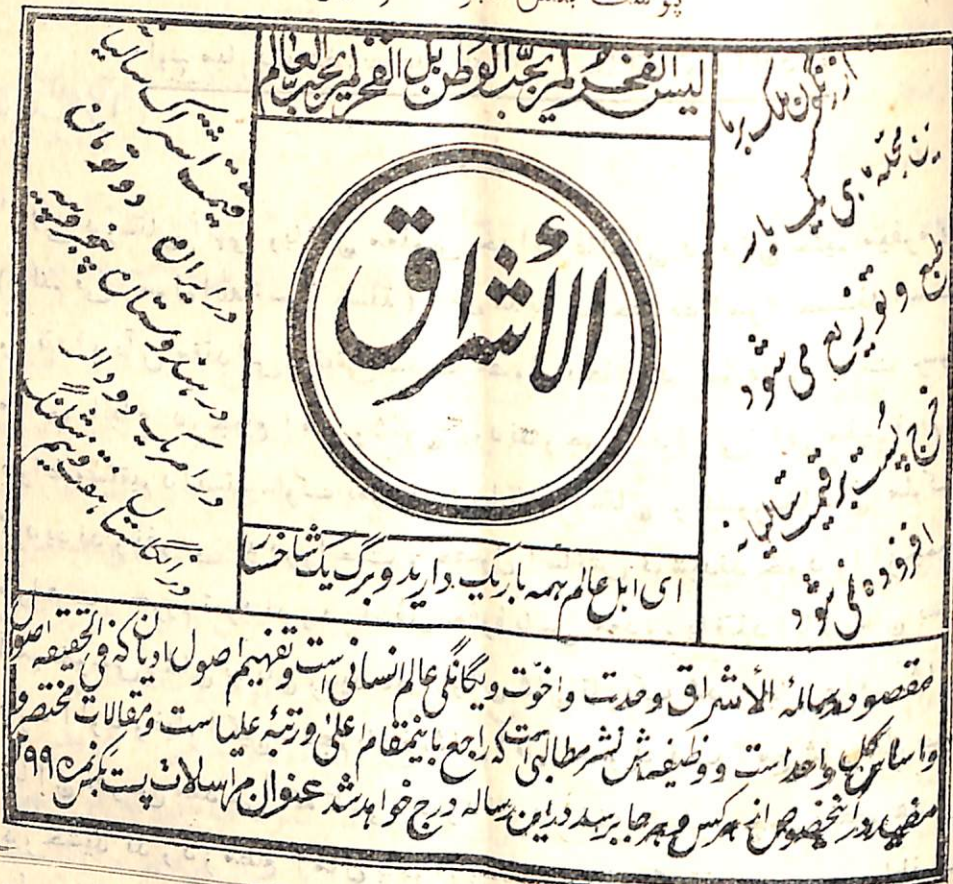 ليس الفخر لمن يحب الوطن بل الفخر لمن يحب العالم
از رنگون ملک برما
این مجله ماهی یک بار
طبع و توزیع می شود
خرج پست بر قیمت سالیانه
افزوده نمی شود
الأشراق
قیمت اشتراک سالیانه
در ایران دو تومان
در هندوستان پنجروپیه
در امریک دو دالر
در انگلستان هفت و نیم شلنگ
ای اهل عالم همه بار یک دارید و برگ یک شاخسار
مقصود رسالهٔ الأشراق وحدت و اخوّت و یگانگی عالم انسانی است و تفهیم اصول ادیان که فی الحقیقه اصول
و اساس کل واحد است و وظیفه‌اش نشر مطالبی است که راجع باینمقام اعلی و رتبهٔ علیاست و مقالات مختصر و
مفید در اینخصوص از هر کس و هر جا برسد در این رساله درج خواهد شد عنوان مراسلات پست بکس نمره ۲۹۹